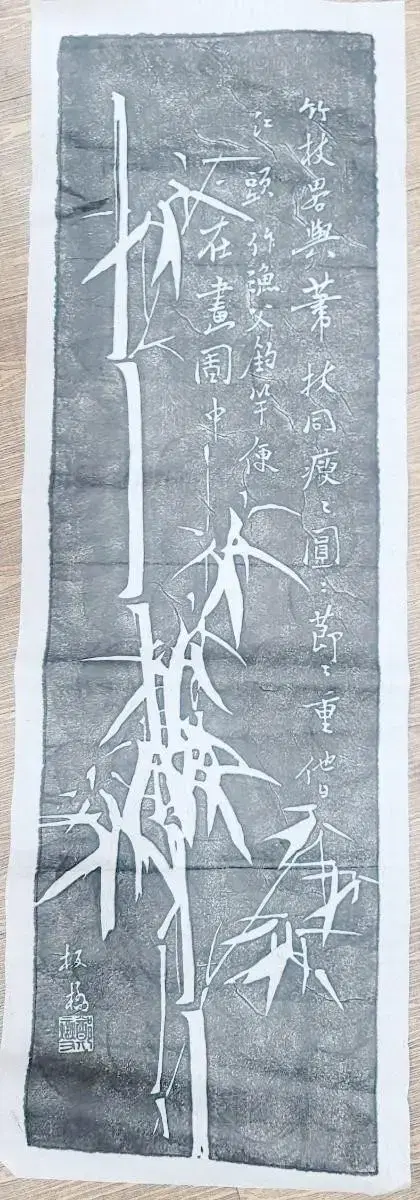 竹杖畧與杖同瘦〻圓〻節〻重他日
江頭作漁父釣竿便
在畫圖中
板橋